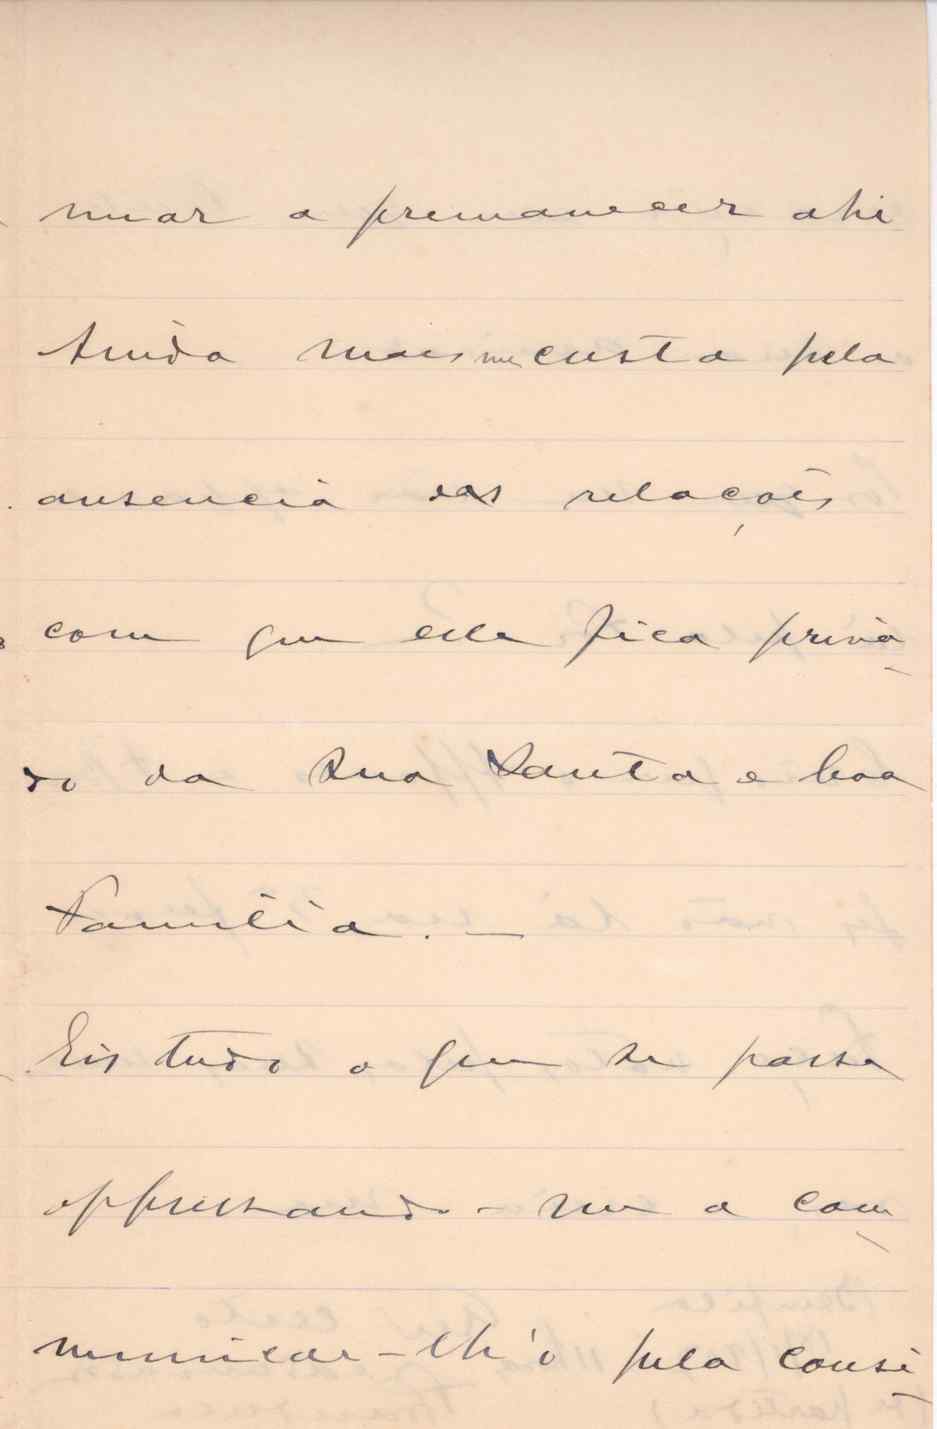 nuar a premanecer ahi
Ainda mais me custa pela
ausencia das relações
com que elle fica priva-
do da sua Santa e boa
Familia. —
Eis tudo o que se passa
appressando-me a com-
municar-lh'o pela consi-